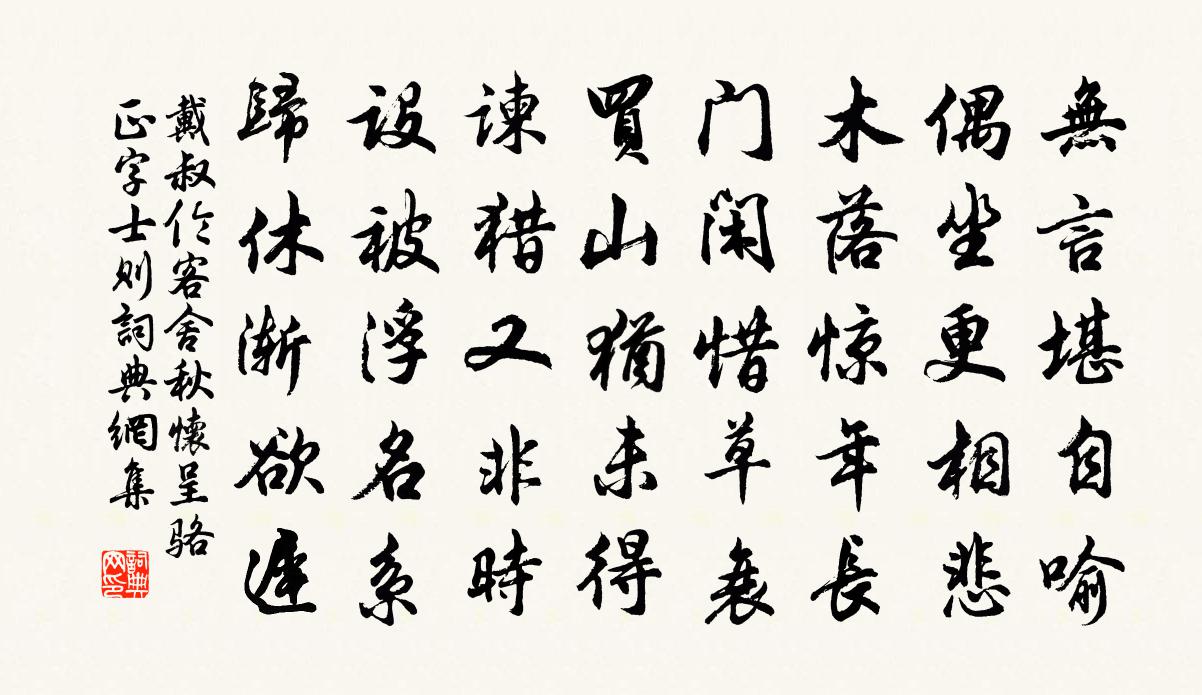 無言堪自喻
偶坐更相悲
木落惊年長
门闲惜草衰
買山猶未得
谏猎又非時
設被浮名系
歸休渐欲遲
戴叔伦客舍秋懷呈骆
正字士则詞典網集
詞典网印